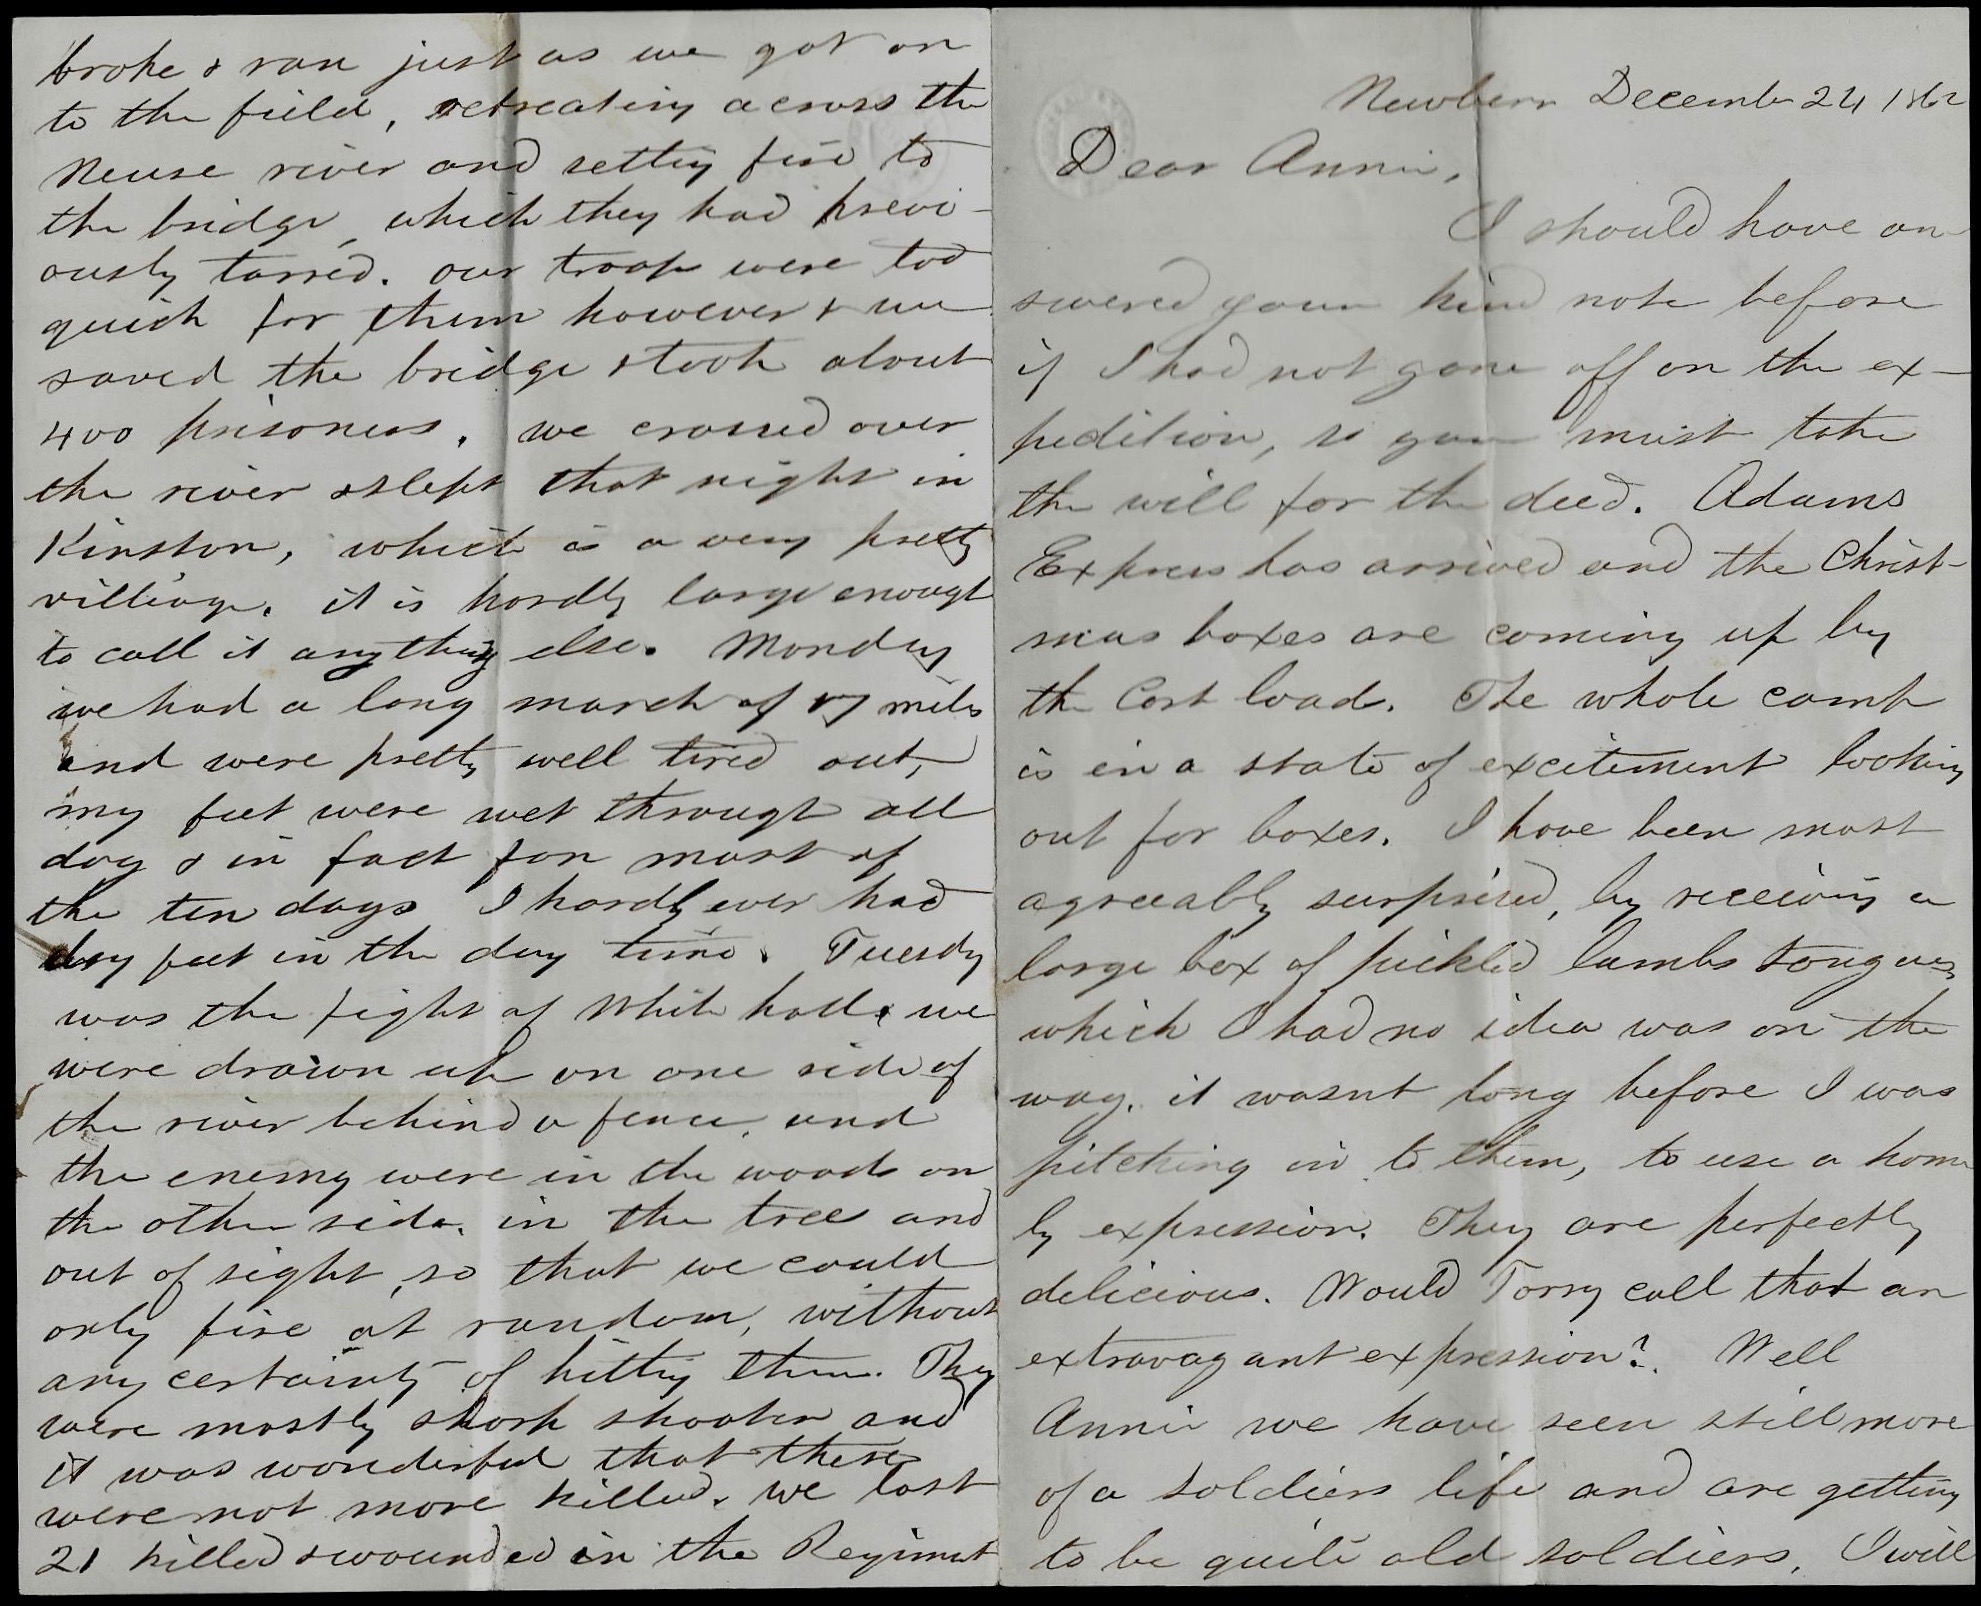 Newbern December 24 1862
Dear Annie,
I should have an
swered your kind note before
if I had not gone off on the ex-
pedition, so you must take
the will for the deed. Adams
Express has arrived and the Christ-
mas boxes are coming up by
the Cart load. The whole camp
is in a state of excitement looking
out for boxes. I have been most
agreeably surprised, by receiving a
large box of pickled lambs tongues
which I had no idea was on the
way. it wasnt long before I was
pitching in to them, to use a home
ly expression. They are perfectly
delicious. Would Torry call that an
extravagant expression? Well
Annie we have seen still more
of a soldiers life and are getting
to be quite old soldiers, I will
broke & ran just as we got on
to the field, retreating across the
Neuse river and setting fire to
the bridge, which they had previ-
ously tarred. our troops were too
quick for them however & we
saved the bridge & took about
400 prisoners. we crossed over
the river & slept that night in
Kinston, which is a very pretty
villiage. it is hardly large enough
to call it anything else. Monday
we had a long march of 17 miles
and were pretty well tired out,
my feet were wet through all
day & in fact for most of
the ten days I hardly ever had
dry feet in the day time. Tuesday
was the fight of White hall, we
were drawn up on one side of
the river behind a fence, and
the enemy were in the woods on
the other side. in the tree and
out of sight, so that we could
only fire at random, without
any certainty of hitting them. They
were mostly sharp shooters and
it was wonderful that there
were not more killed. we lost
21 killed & wounded in the Regiment